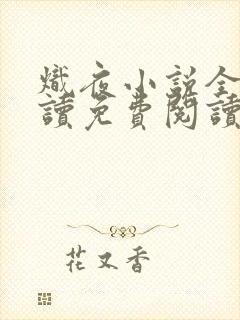 熾夜小說全
讀免費閱讀
花又香